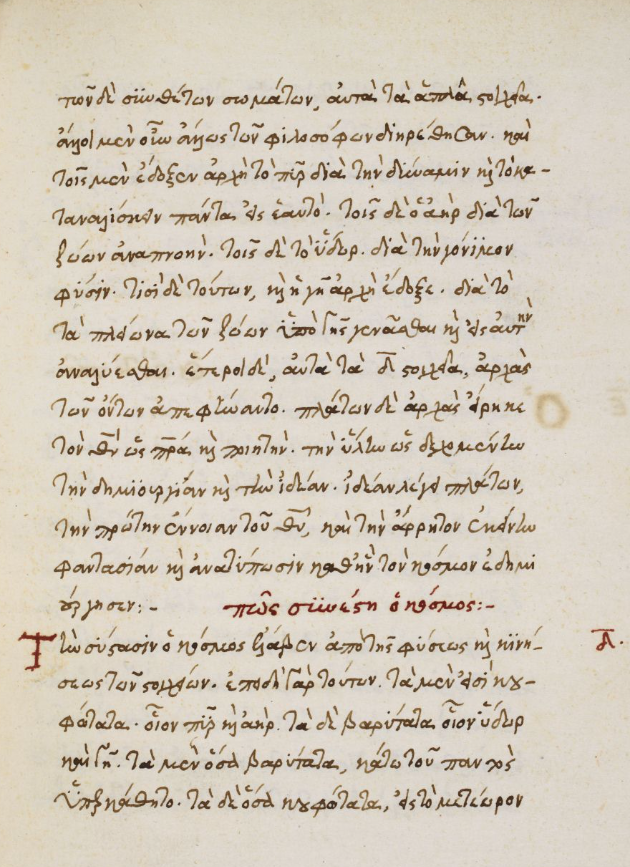 τῶν δὲ συνθέτων σωμάτων, αὐτὰ τὰ ἁπλᾶ στοιχεῖα.
ἄλλοι μὲν οὖν ἄλλως τῶν φιλοσόφων διηρέθησαν. καὶ
τοῖς μὲν ἔδοξεν ἀρχὴ τὸ πῦρ διὰ τὴν δύναμιν καὶ τὸ κα-
ταναλίσκειν πάντα εἰς ἑαυτό. τοῖς δὲ ὁ ἀὴρ διὰ τῶν
ζώων ἀναπνοήν. τοῖς δὲ τὸ ὕδωρ. διὰ τὴν γόνιμον
φύσιν. τισὶ δὲ τούτων, καὶ ἡ γῆ ἀρχὴ ἔδοξε. διὰ τὸ
τὰ πλείονα τῶν ζώων ὑπὸ γῆς γενᾶσθαι καὶ εἰς αὐτὴν
ἀναλύεσθαι. ἕτεροι δὲ, αὐτὰ τὰ δ̅ στοιχεῖα, ἀρχὰς
τῶν ὄντων ἀπεφήναντο. πλάτων δὲ ἀρχὰς εἴρηκε
τὸν θ̅ν̅ ὡς π̅ρ̅α̅ καὶ ποιητήν. τὴν ὕλην ὡς δεχομένην
τὴν δημιουργίαν καὶ τὴν ἰδέαν. ἰδέαν λέγει πλάτων,
τὴν πρώτην ἔννοιαν τοῦ θ̅υ̅, καὶ τὴν ἄρρητον ἐκείνην
φαντασίαν καὶ ἀνατύπωσιν καθ' ἣν τὸν κόσμον ἐδημι
ούργησεν :- πῶς συνέστη ὁ κόσμος :-
Τὴν σύστασιν ὁ κόσμος ἔλαβεν ἀπὸ τῆς φύσεως καὶ κινή-
σεως τῶν στοιχείων. ἐπειδὴ γὰρ τούτων. τὰ μὲν εἰσὶ κου-
φότατα. οἷον πῦρ καὶ ἀήρ. τὰ δὲ βαρύτατα οἷον ὕδωρ
καὶ γῆ. τὰ μὲν ὅσα βαρύτατα, κάτω τοῦ παντὸς
ὑπεκάθητο. τὰ δὲ ὅσα κουφότατα, εἰς τὸ μετέωρον